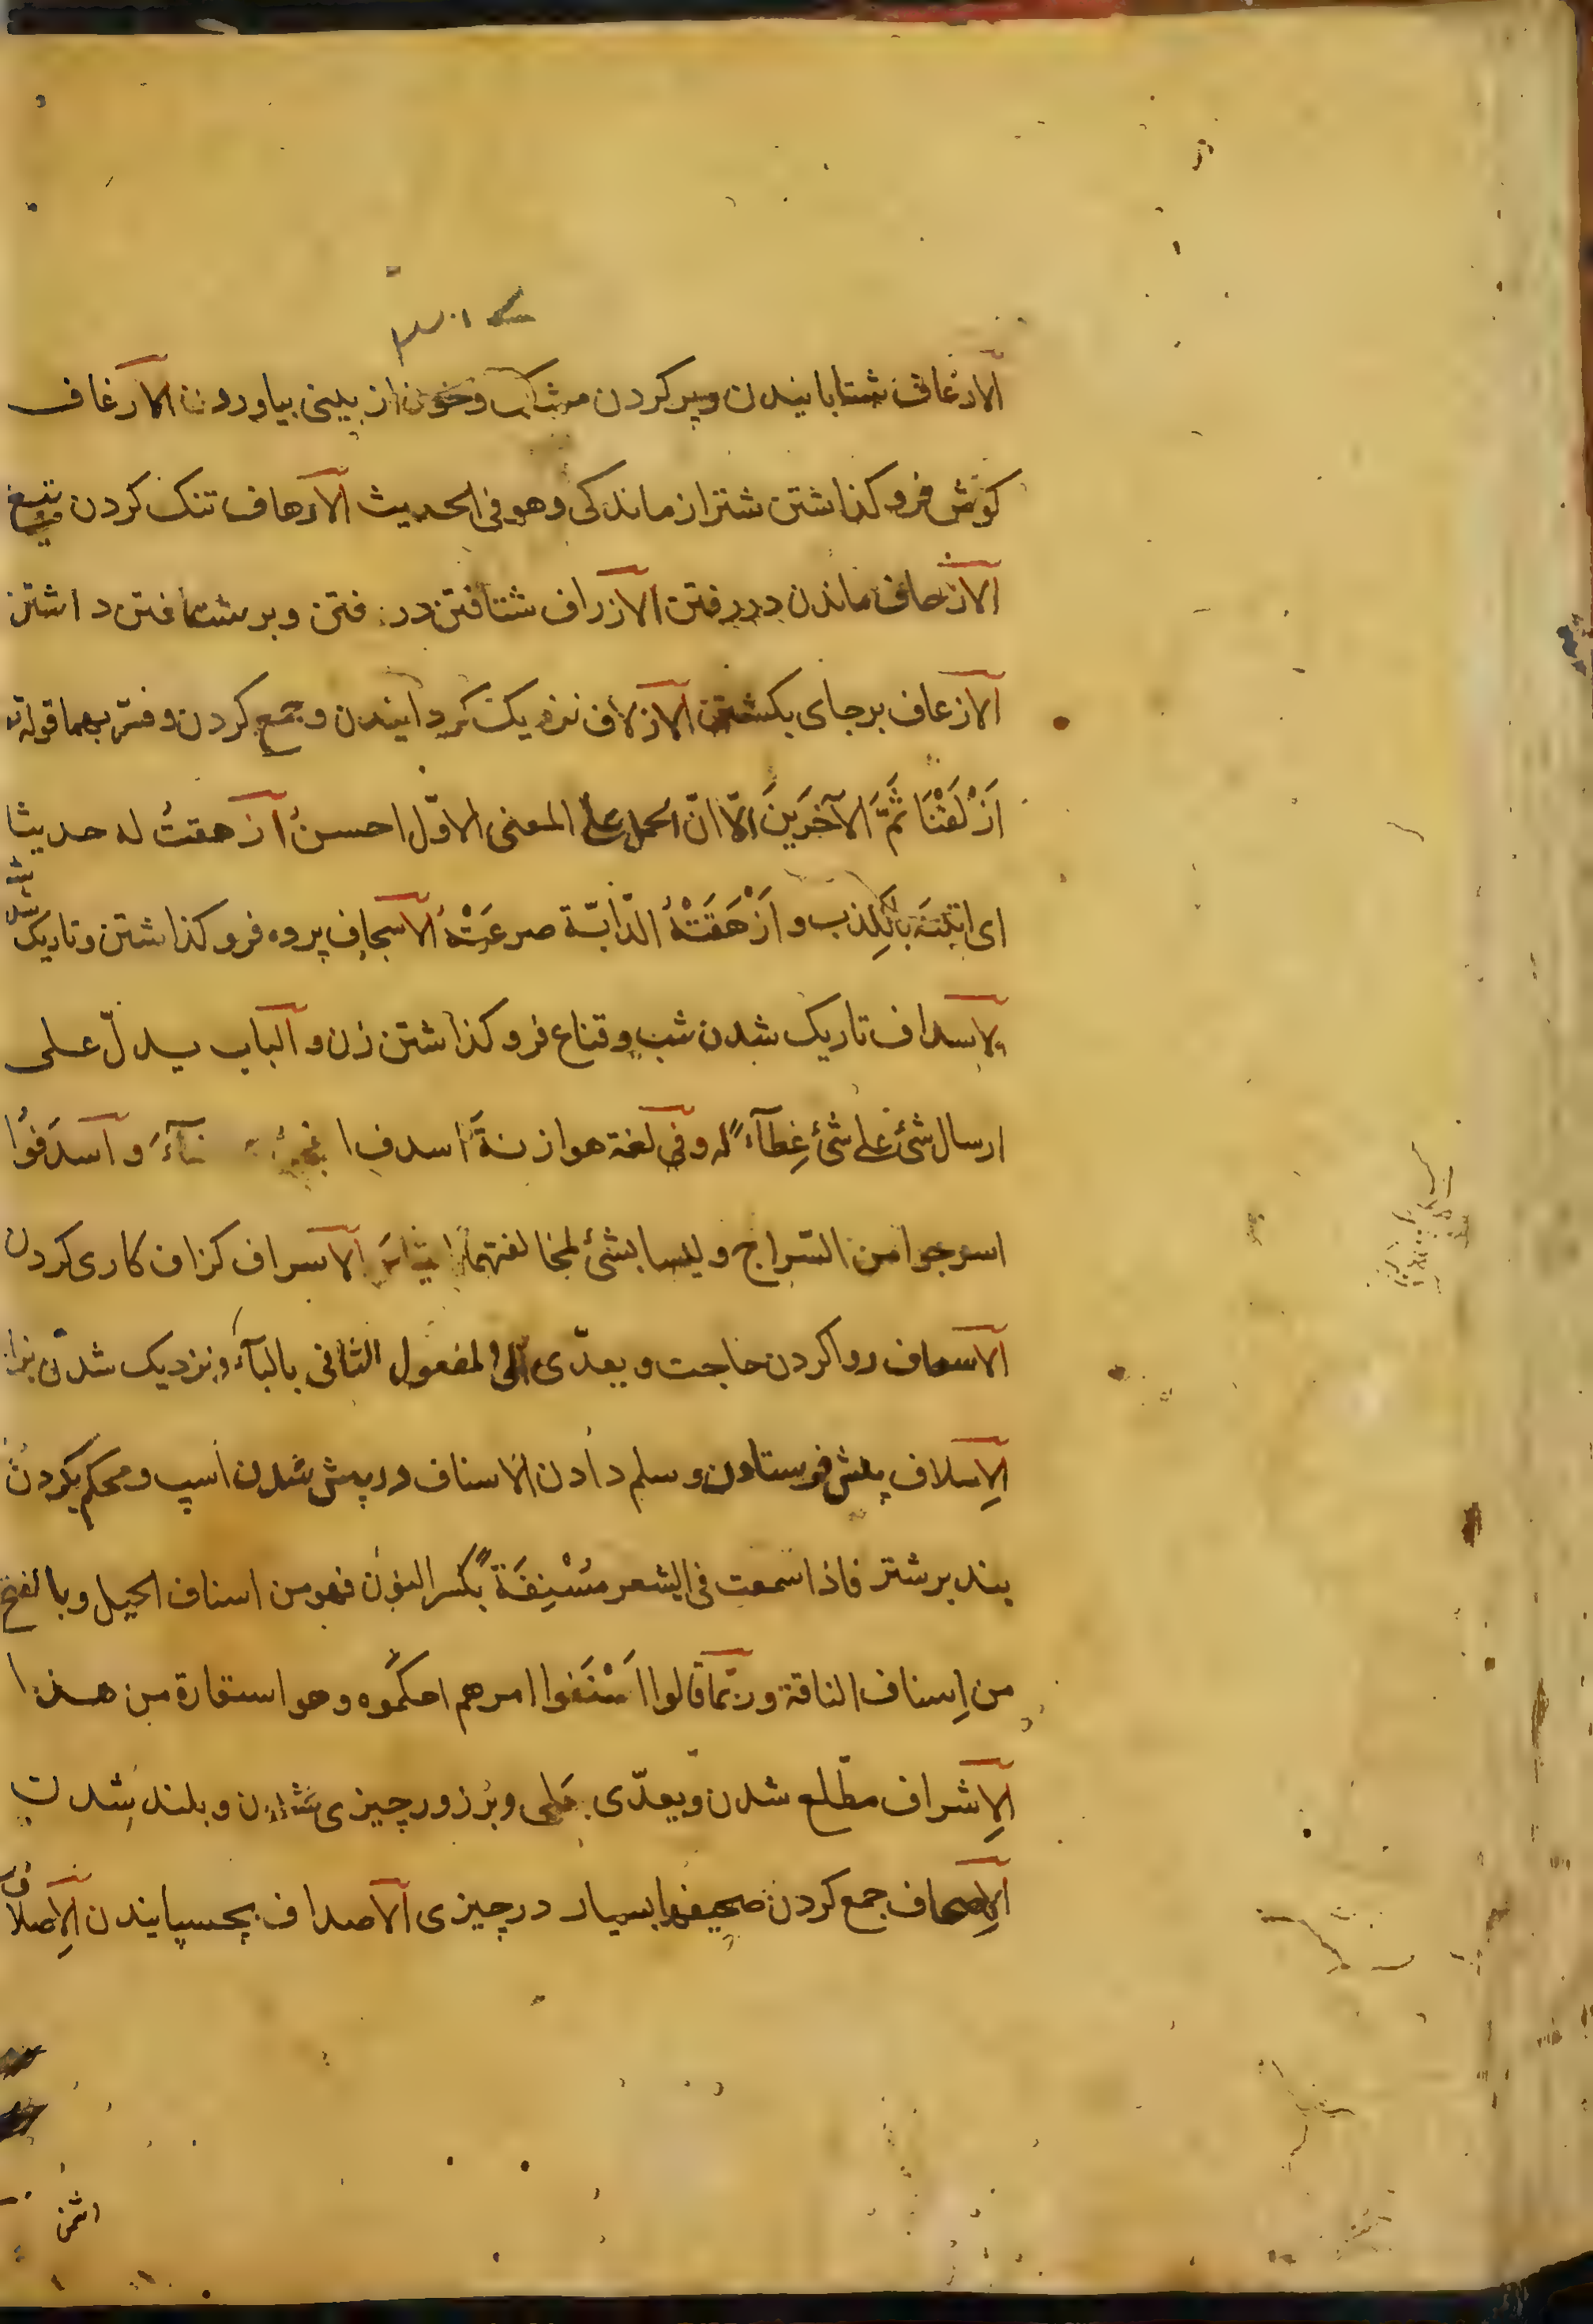 الارعاف شتابانیدن و پر کردن مشک و خون از بینی بیاوردن الارغاف
کوش فرو کذاشتن شتر از ماندکی و هو فی الحدیث الارهاف تنک کردن تیغ
الازحاف ماندن در رفتن الازراف شتافتن در رفتن و بر شتافتن داشتن
الازعاف بر جای بکشتن الازلاف نزدیک کردانیدن و جمع کردن و فسّر بهما قوله تع
اَزْلَفْنَا ثَمَّ الآخَرِینَ الّا انّ الحمل علی المعنی الاوّل احسنُ ازهفتُ له حدیثا
ای اتیته بالکِذب و اَزْهَفَتْهُ الدّابّة صرعَتْهُ الاسجاف پرده فرو کذاشتن و تاریک شدن شب
الاسداف تاریک شدن شب و قناع فرو کذاشتن زن و الباب یدلّ علی
ارسال شئ علی شئ غِطآءً له و فی لغة هوازنةَ اسدف ا و اسدَفُوا
اسرجوا من السّراج و لیسا بشئ لمخالفتهما الاسراف کزاف کاری کردن
الاسعاف روا کردن حاجت و یعدّی الی المفعول الثانی بالبآء و نزدیک شدن
الاِسلاف پیش فرستادن و سلم دادن الاسناف در پیش شدن اسپ و محکم کردن
بند بر شتر فاذا سمعت فی الشعر مُسْنِفَةً بکسر النون فهو من اسناف الخیل و بالفتح
من اِسناف الناقة و ربّما قالوا اَسْنَفوا امرهم احکموه و هو استعارة من هذا
الاِشراف مطّلع شدن و یعدّی بعلی و بر زور چیزی شدن و بلند شدن
الاِصحاف جمع کردن صحیفها بسیار در چیزی الاصداف بچسپانیدن الاِصلاف